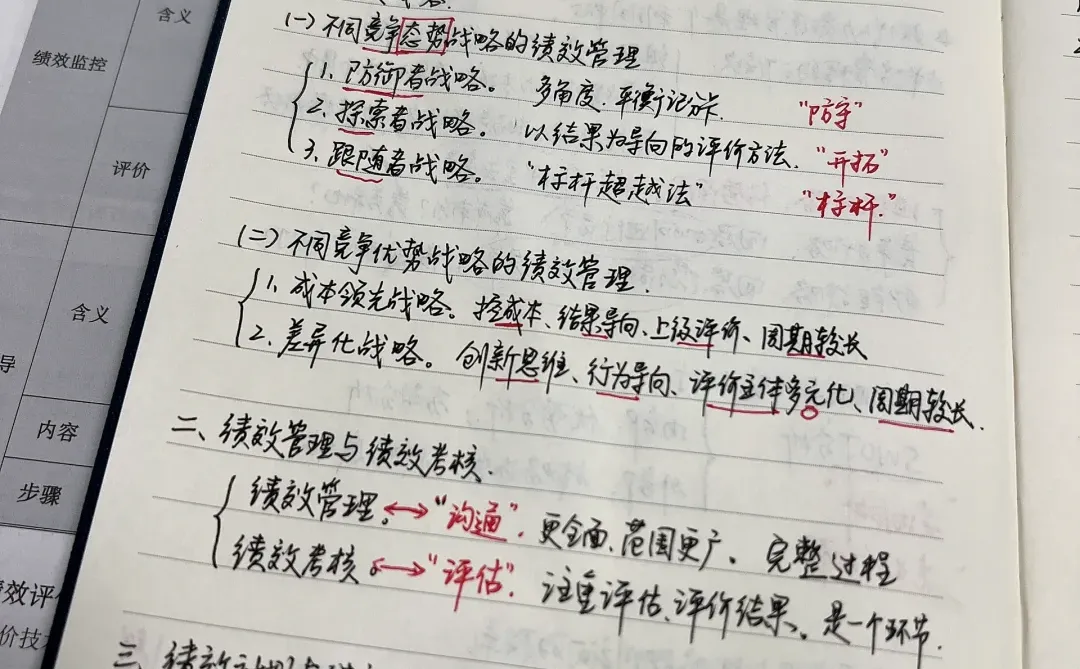 含义
绩效监控
评价
含义
导
内容
步骤
效评
价技
(一) 不同竞争态势战略的绩效管理
1. 防御者战略。 多角度. 平衡记分卡. “防守”
2. 探索者战略。 以结果为导向的评价方法. “开拓”
3. 跟随者战略。 “标杆超越法” “标杆.”
(二) 不同竞争优势战略的绩效管理.
1. 成本领先战略。 控成本、结果导向、上级评价、周期较长
2. 差异化战略。 创新思维、行为导向、评价主体多元化、周期较长.
二、绩效管理与绩效考核.
绩效管理。↔“沟通”. 更全面、范围更广。 完整过程
绩效考核 ↔“评估”. 注重评估、评价结果。是一个环节.
三、绩效